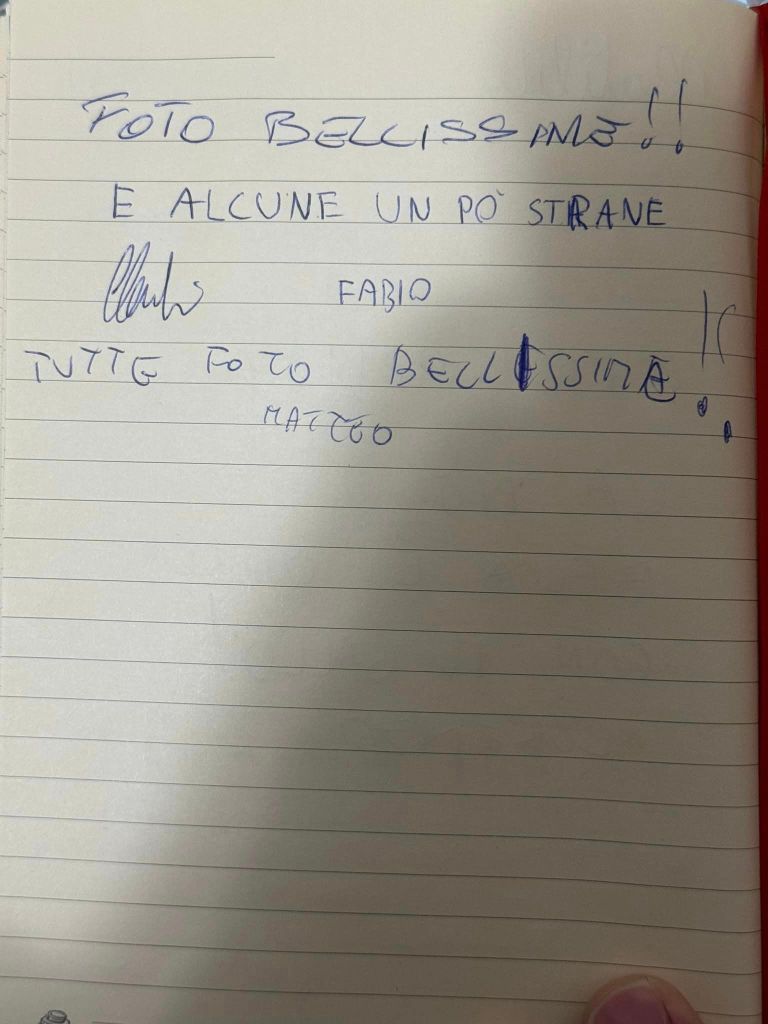 FOTO BELLISSIME!!
E ALCUNE UN PO' STRANE
FABIO
TUTTE FOTO BELLISSIME!!
MATTEO